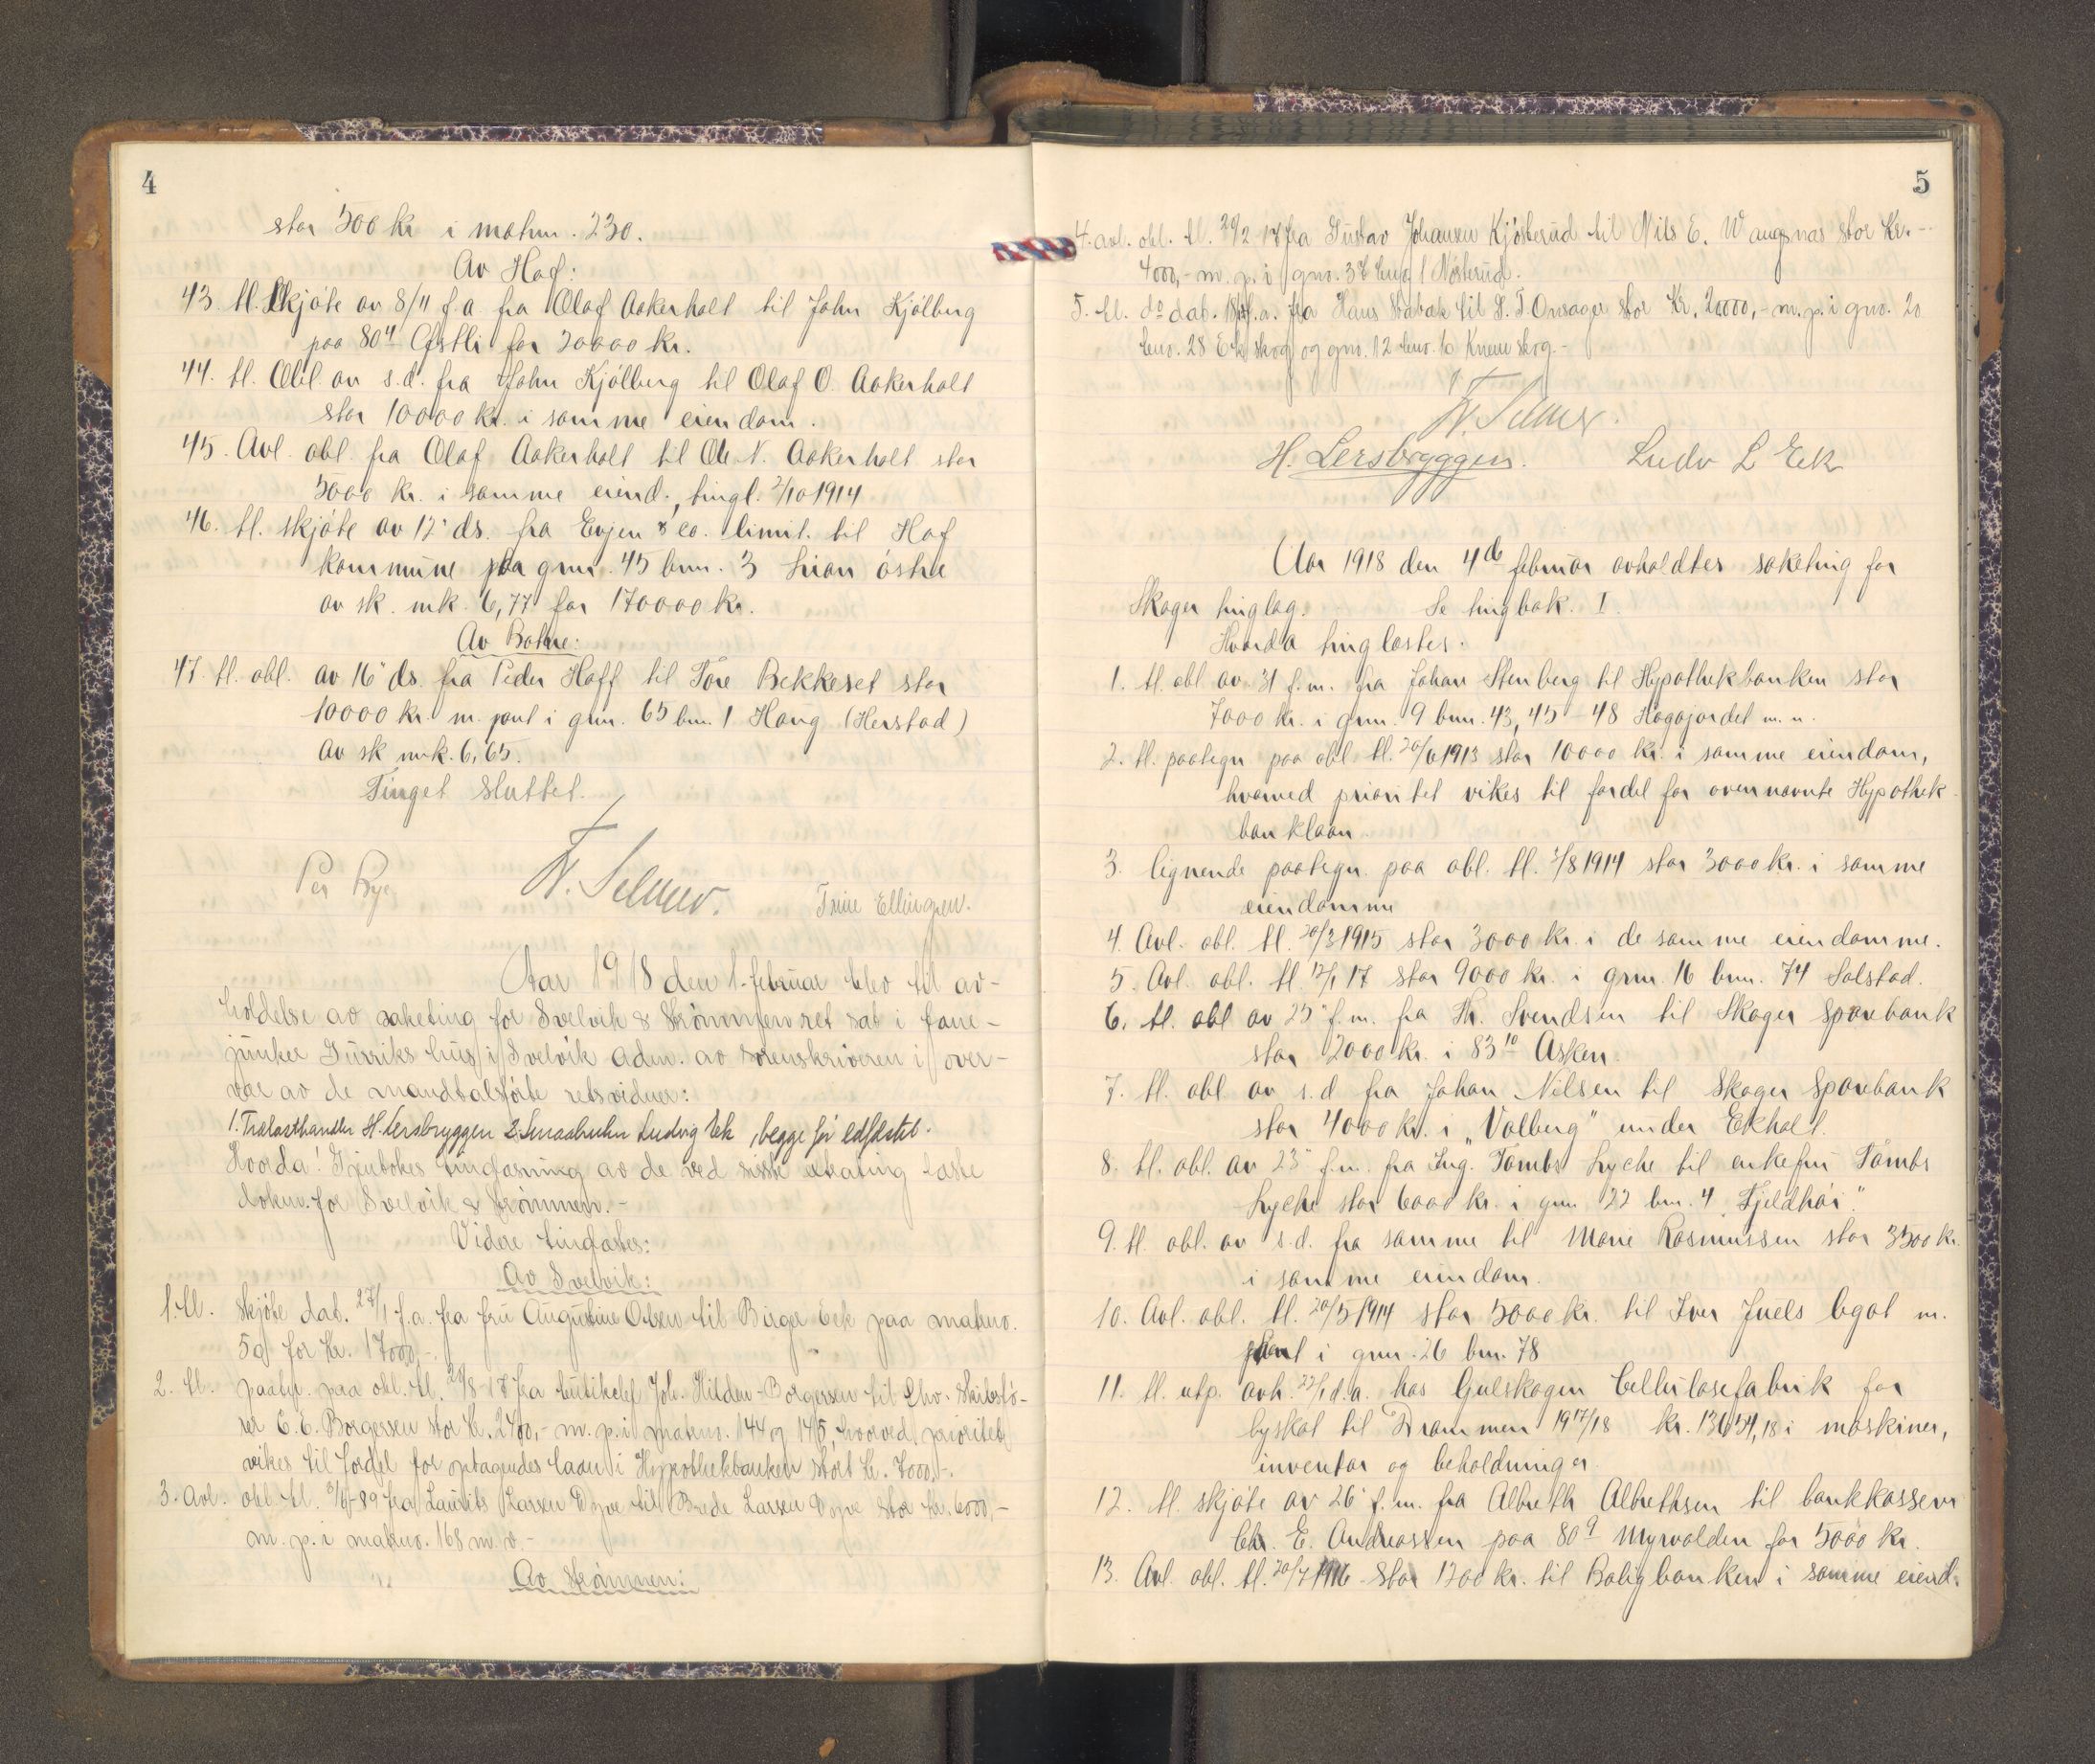 4
stor 500 kr i matnr. 230.
Av Hof:
43. tl. skjøte av 8/11 f.a. fra Olaf Aakerholt til John Kjølberg
paa 80 4 for 20000 kr.
44. tl. Obl. av s.d. fra John Kjølberg til Olaf O. Aakerholt
stor 10000 kr. i samme eiendom.
45. Avl. obl. fra Olaf Aakerholt til Ole N. Aakerholt stor
5000 kr. i samme eiend., tingl. 2/10 1914
46. tl. skjøte av 12' ds. fra Evjen & co. limit. til Hof
kommune paa gnr. 45 bnr. 3 Lian østre
av sk. mk. 6,77 for 170000 kr.
Av Botne:
47. tl. obl. av 16" ds. fra Peder Hoff til Tore Bekkeset stor
10000 kr. m. pant i gnr. 65 bnr. 1 Haug (Herstad)
av sk mrk. 6,65.
Tinget sluttet.
Per Rye F. W. Selmer. Trine Ellingsen.
Aar 1918 den 1. februar blev til av-
holdelse av saketing for Svelvik & Strømmen ret sat i fane-
junker hus i Svelvik adm. av sorenskriveren i over-
vær av de mandtalsførte retsvidner:
1. Trælasthandler H. Lersbryggen 2. Ludvig Eek, begge før edfæstet.
Hvorda! tinglæsning av de ved sisste læste
dokum. for Svelvik & Strømmen.-
Videre tinglæstes:
Av Svelvik:
1. tl. skjøte dat. 27/1 f.a. fra fru Augustine Olsen til Birger Eek paa matrno.
59 for Kr. 17000,-.
2. tl. paategn. paa obl. tl. 24/8 17 fra butikchef Joh. Hilden-Borgersen til Skibsfø-
rer C. C. Borgersen stor kr. 2400,- m. p. i matrno. 144 og 145, hvorved prioritet
vikes til fordel for optagendes laan i Hypothekbanken stort kr. 7000,-.
3. Avl. obl. tl. 3/6-89 fra Laurits Larsen Dyve til Brede Larsen Dyve stor kr. 6000,-
m. p. i matrno. 168 m. v.-
Av Strømmen:
5
4. avl. obl. tl. 2-17 fra Gustav Johansen Kjøsterud til Nils E. Wangsnas stor Kr.-
4000,- m. p. i gno. 37 bno 1 Nøsterud.
5. tl. do dat. f.a. fra Hans Stabæk til Onsager stor Kr. 20000,- m. p. i gno. 20
bno. 28 Ekskog og gno. 12 bno. 16 skog.-
F. W. Selmer.
H. Lersbryggen. Ludv L Eek
Aar 1918 den 4de februar avholdtes saketing for
Skoger tinglag. Se tingbok. I.
Hvorda tinglæstes.
1. tl. obl av 31 f.m. fra Johan Stenberg til Hypothekbanken stor
7000 kr. i gnr. 9 bnr. 43, 45-48 Hagajordet m. n.
2. tl. paategn paa obl. tl. 20/6 1913 stor 10000 kr. i samme eiendom,
hvormed prioritet vikes til fordel for ovennævnte Hypothek-
banklaan.
3. lignende paategn. paa obl. tl. 3/8 1914 stor 3000 kr. i samme
eiendomme
4. Avl. obl. tl. 20/3 1915 stor 3000 kr. i de samme eiendomme.
5. Avl. obl. tl 12/1 17 stor 9000 kr. i gnr. 16 bnr. 74 Solstad.
6. tl. obl av 25" f.m. fra Th. Svendsen til Skoger Sparebank
stor 2000 kr. i 83 10 Asken.
7. tl. obl av s.d fra Johan Nilsen til Skoger Sparebank
stor 4000 kr. i „Volberg" under Ekholt.
8. tl. obl. av 23" f.m. fra Ing. Tambs Lyche til enkefru Tambs
Lyche stor 6000 kr. i gnr 22 bnr. 4 „Fjeldhøi".
9. tl. obl. av s.d. fra samme til Marie Rasmussen stor 3500 kr.
i samme eiendom.
10. Avl. obl. tl. 20/5 1914 stor 5000 kr. til Iver Juels legat m.
pant i gnr. 26 bnr. 78
11. tl. utp. avh. 22/1 d.a. hos Gulskogen Cellulosefabrik for
byskat til Drammen 1917/18 kr. 13654,18 i maskiner,
inventar og beholdninger.
12. tl. skjøte av 26' f.m. fra Albreth Albrethsen til bankkasserer
Chr. E. Andreassen paa 80 9 Myrvolden for 5000 kr.
13. Avl. obl. tl. 20/7 1916 stor 1200 kr. til Boligbanken i samme eiend.